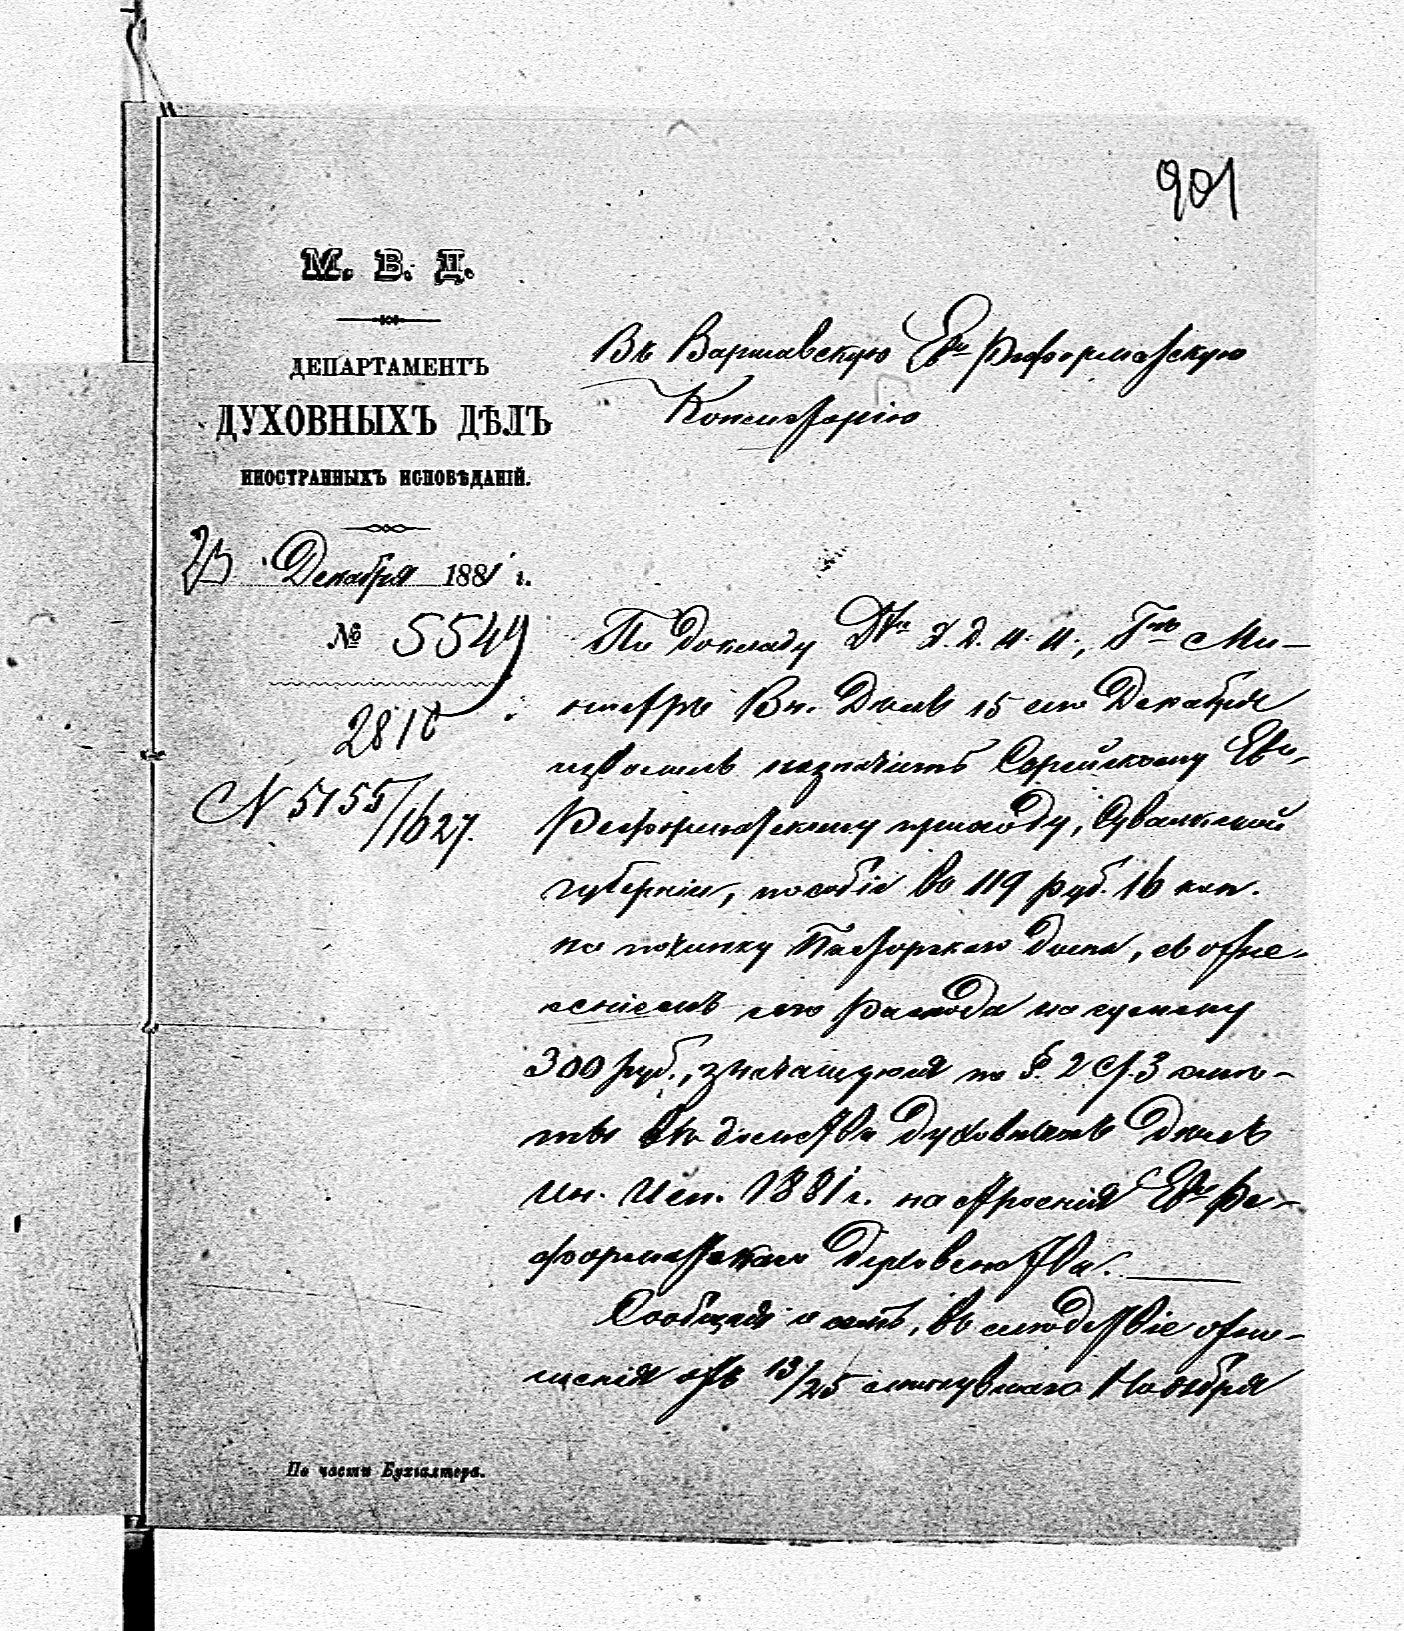 901
М. В. Д.
ДЕПАРТАМЕНТЪ
ДУХОВНЫХЪ ДѢЛЪ
ИНОСТРАННЫХЪ ИСПОВѢДАНІЙ.
23 Декабря 1881 г.
№ 5549
2816
N 5155/1627.
Въ Варшавскую Ев. Реформатскую
Консисторію
По докладу Д-та Д. Д. И. И., Г-нъ Ми-
нистръ Вн. Дѣлъ 15 сего Декабря
изволилъ назначить Серейскому Ев.-
Реформатскому приходу, Сувалкской
губерніи, пособіе въ 119 руб. 16 коп.
на починку Пасторскаго дома, съ отне-
сеніемъ сего расхода на сумму
300 руб., значащуюся по §. 2 ст. 3 смѣ-
ты вѣдомства Духовныхъ Дѣлъ
Ин. Исп. 1881 г. на строенія Ев. Ре-
форматскаго Духовенства.
Сообщая о семъ, въ слѣдствіе отно-
шенія отъ 13/25 минувшаго Ноября
По части Бухгалтера.